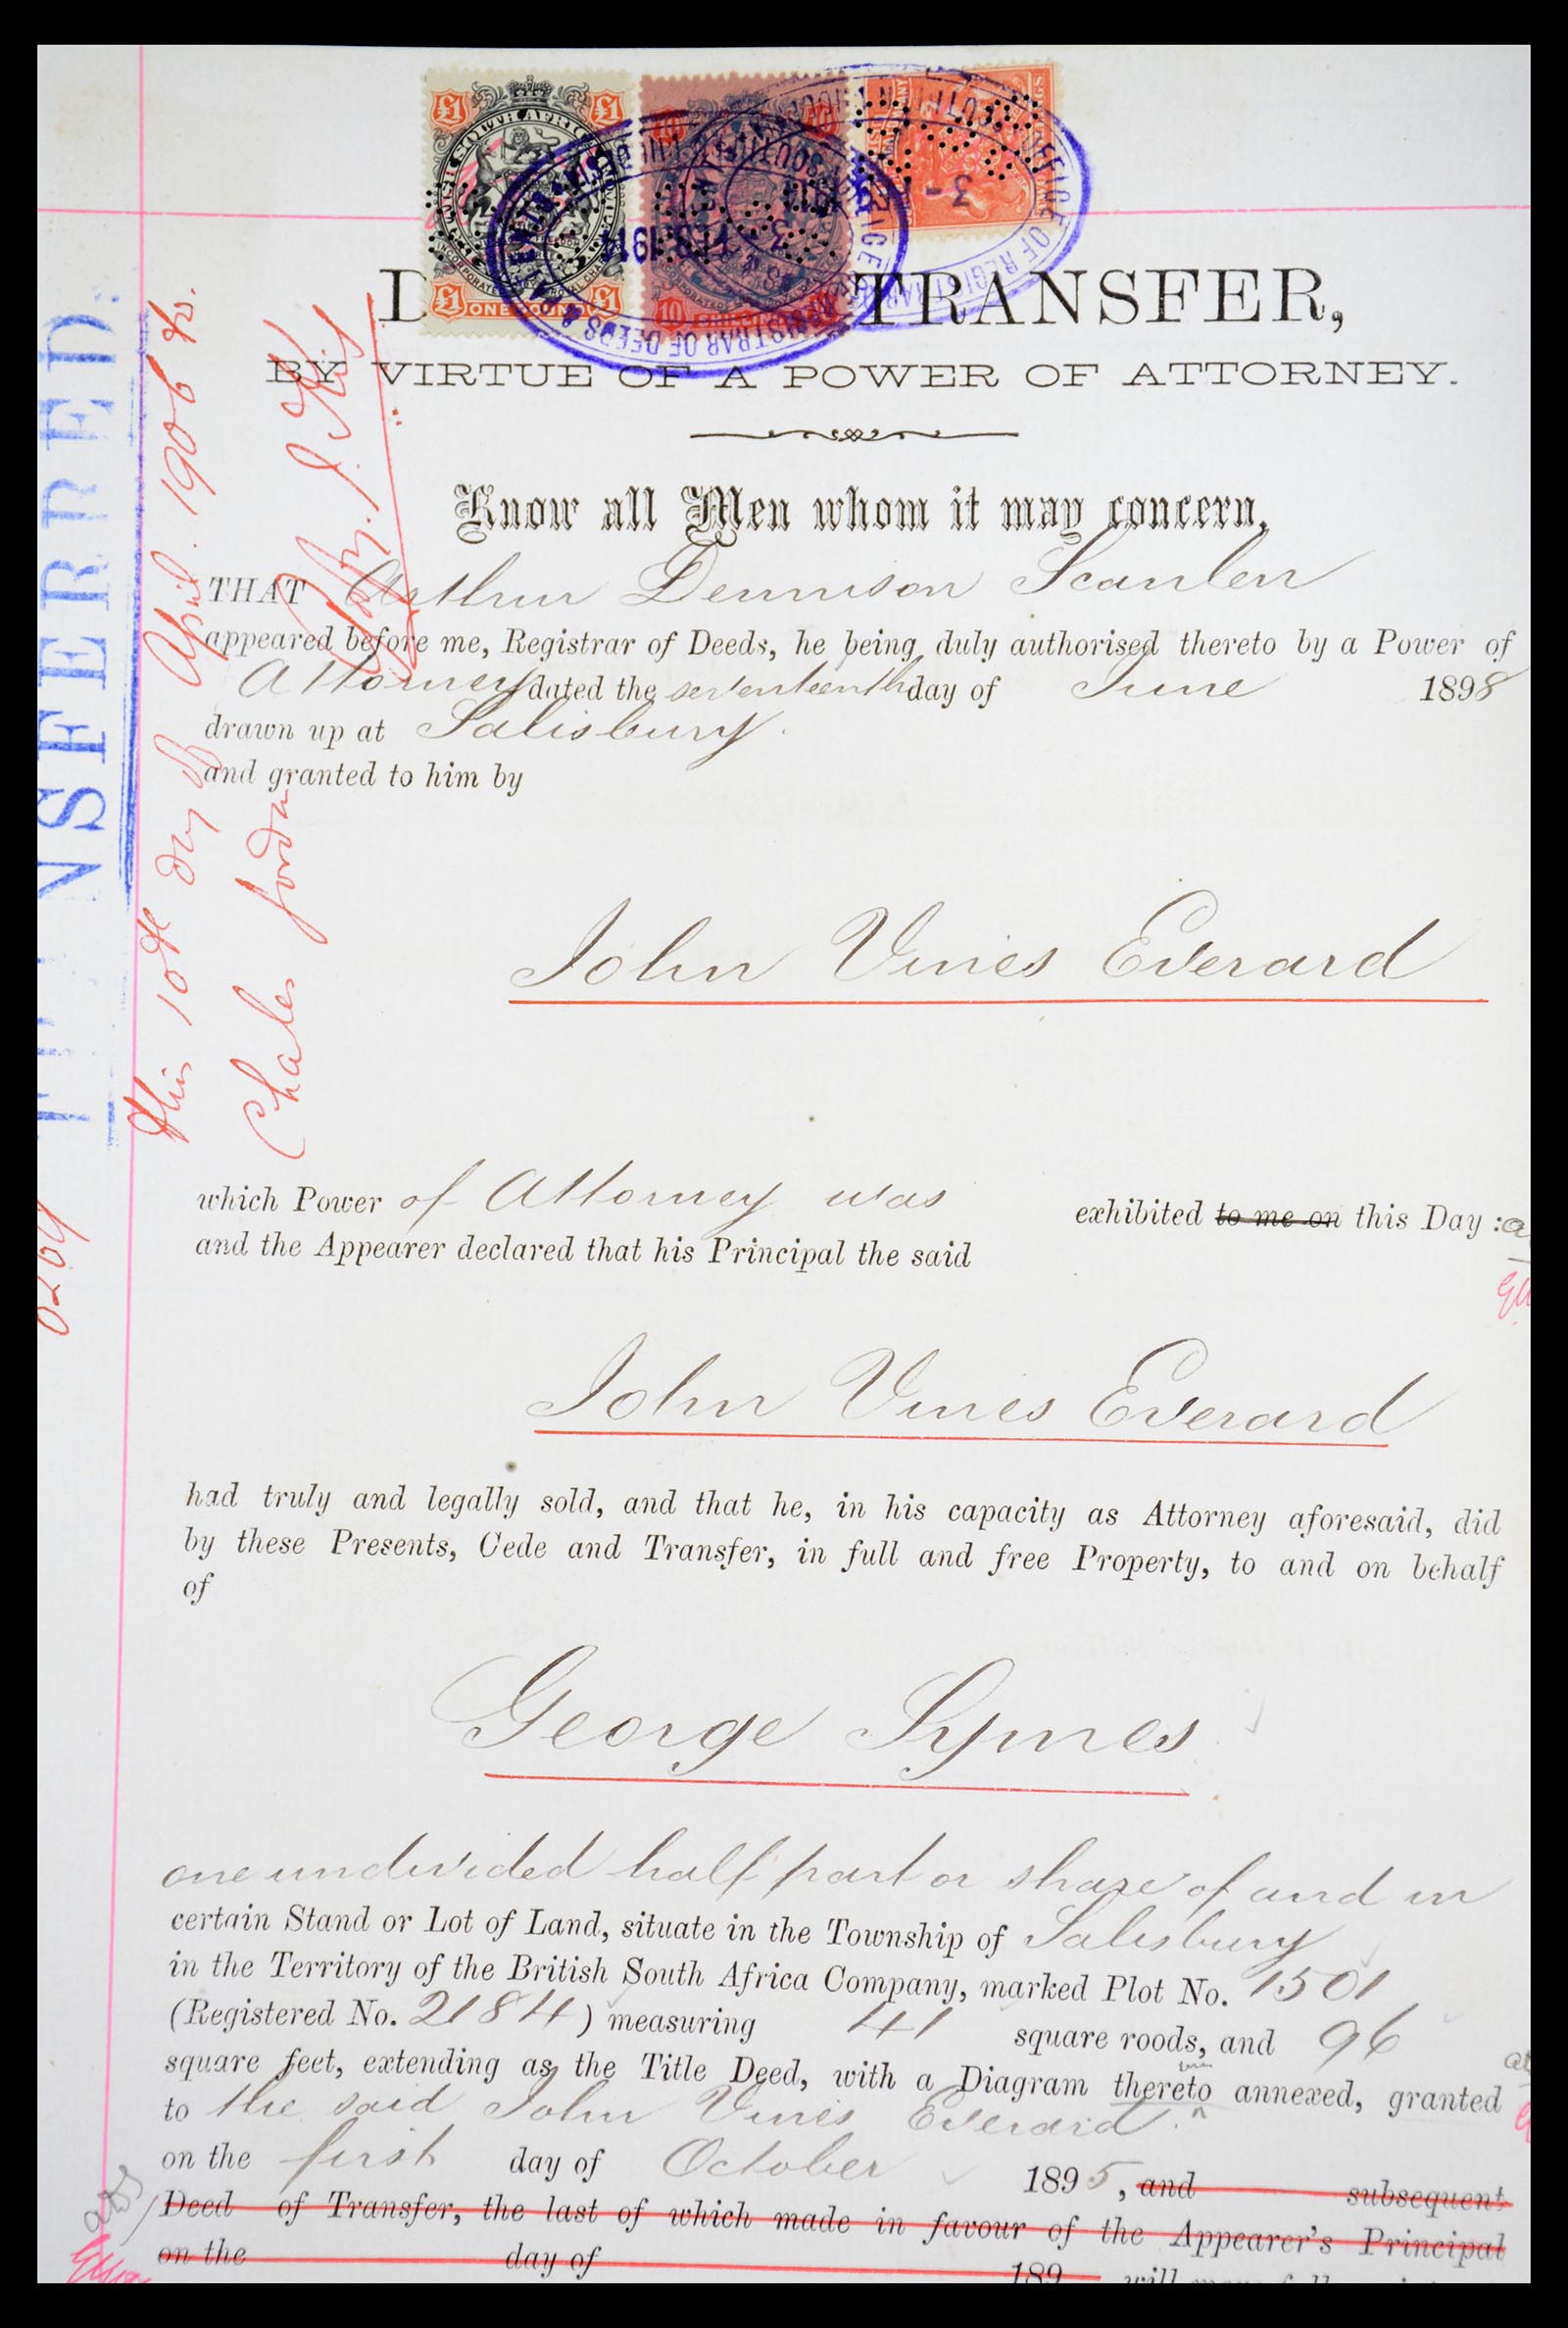 £1 £1
£1 ONE POUND £1
10
REGISTRAR OF DEEDS &
OFFICE OF REGISTRAR
D TRANSFER,
BY VIRTUE OF A POWER OF ATTORNEY.
Know all Men whom it may concern,
THAT Arthur Dennison Scanlen
appeared before me, Registrar of Deeds, he being duly authorised thereto by a Power of
Attorney dated the seventeenth day of June 1898
drawn up at Salisbury.
and granted to him by
John Vines Everard
which Power of Attorney was exhibited to me on this Day :
and the Appearer declared that his Principal the said
John Vines Everard
had truly and legally sold, and that he, in his capacity as Attorney aforesaid, did
by these Presents, Cede and Transfer, in full and free Property, to and on behalf
of
George Symes
one undivided half part or share of and in
certain Stand or Lot of Land, situate in the Township of Salisbury
in the Territory of the British South Africa Company, marked Plot No. 1501
(Registered No. 2184) measuring 41 square roods, and 96
square feet, extending as the Title Deed, with a Diagram thereto annexed, granted
to the said John Vines Everard.
on the first day of October 1895, and subsequent
Deed of Transfer, the last of which made in favour of the Appearer's Principal
on the day of 189
NSFERRED
this 10th day of April 1906 to
Charles